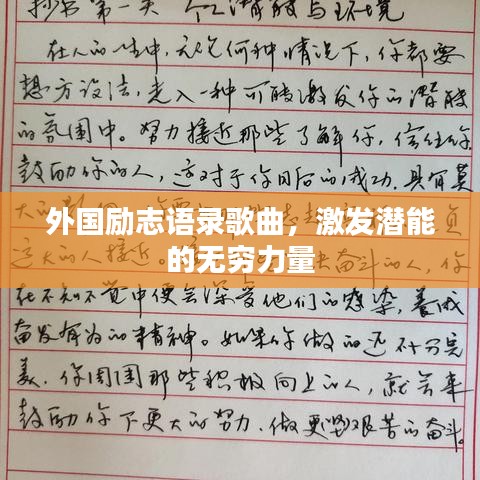 抄书第一天 个人潜能与环境
在人的一生中，无论何种情况下，你都要
想方设法，走入一种可能激发你的潜能
的氛围中。努力接近那些了解你，信任你，
鼓励你的人，这对于你日后的成功，具有莫
大的
外国励志语录歌曲，激发潜能
的无穷力量
远大的人接近。奋斗的人，你
在不知不觉中便会深受他们的感染，养成
奋发有为的精神。如果你做的还不十分完
美，你周围那些积极向上的人，就会来
鼓励你下更大的努力，做更艰苦的奋斗。